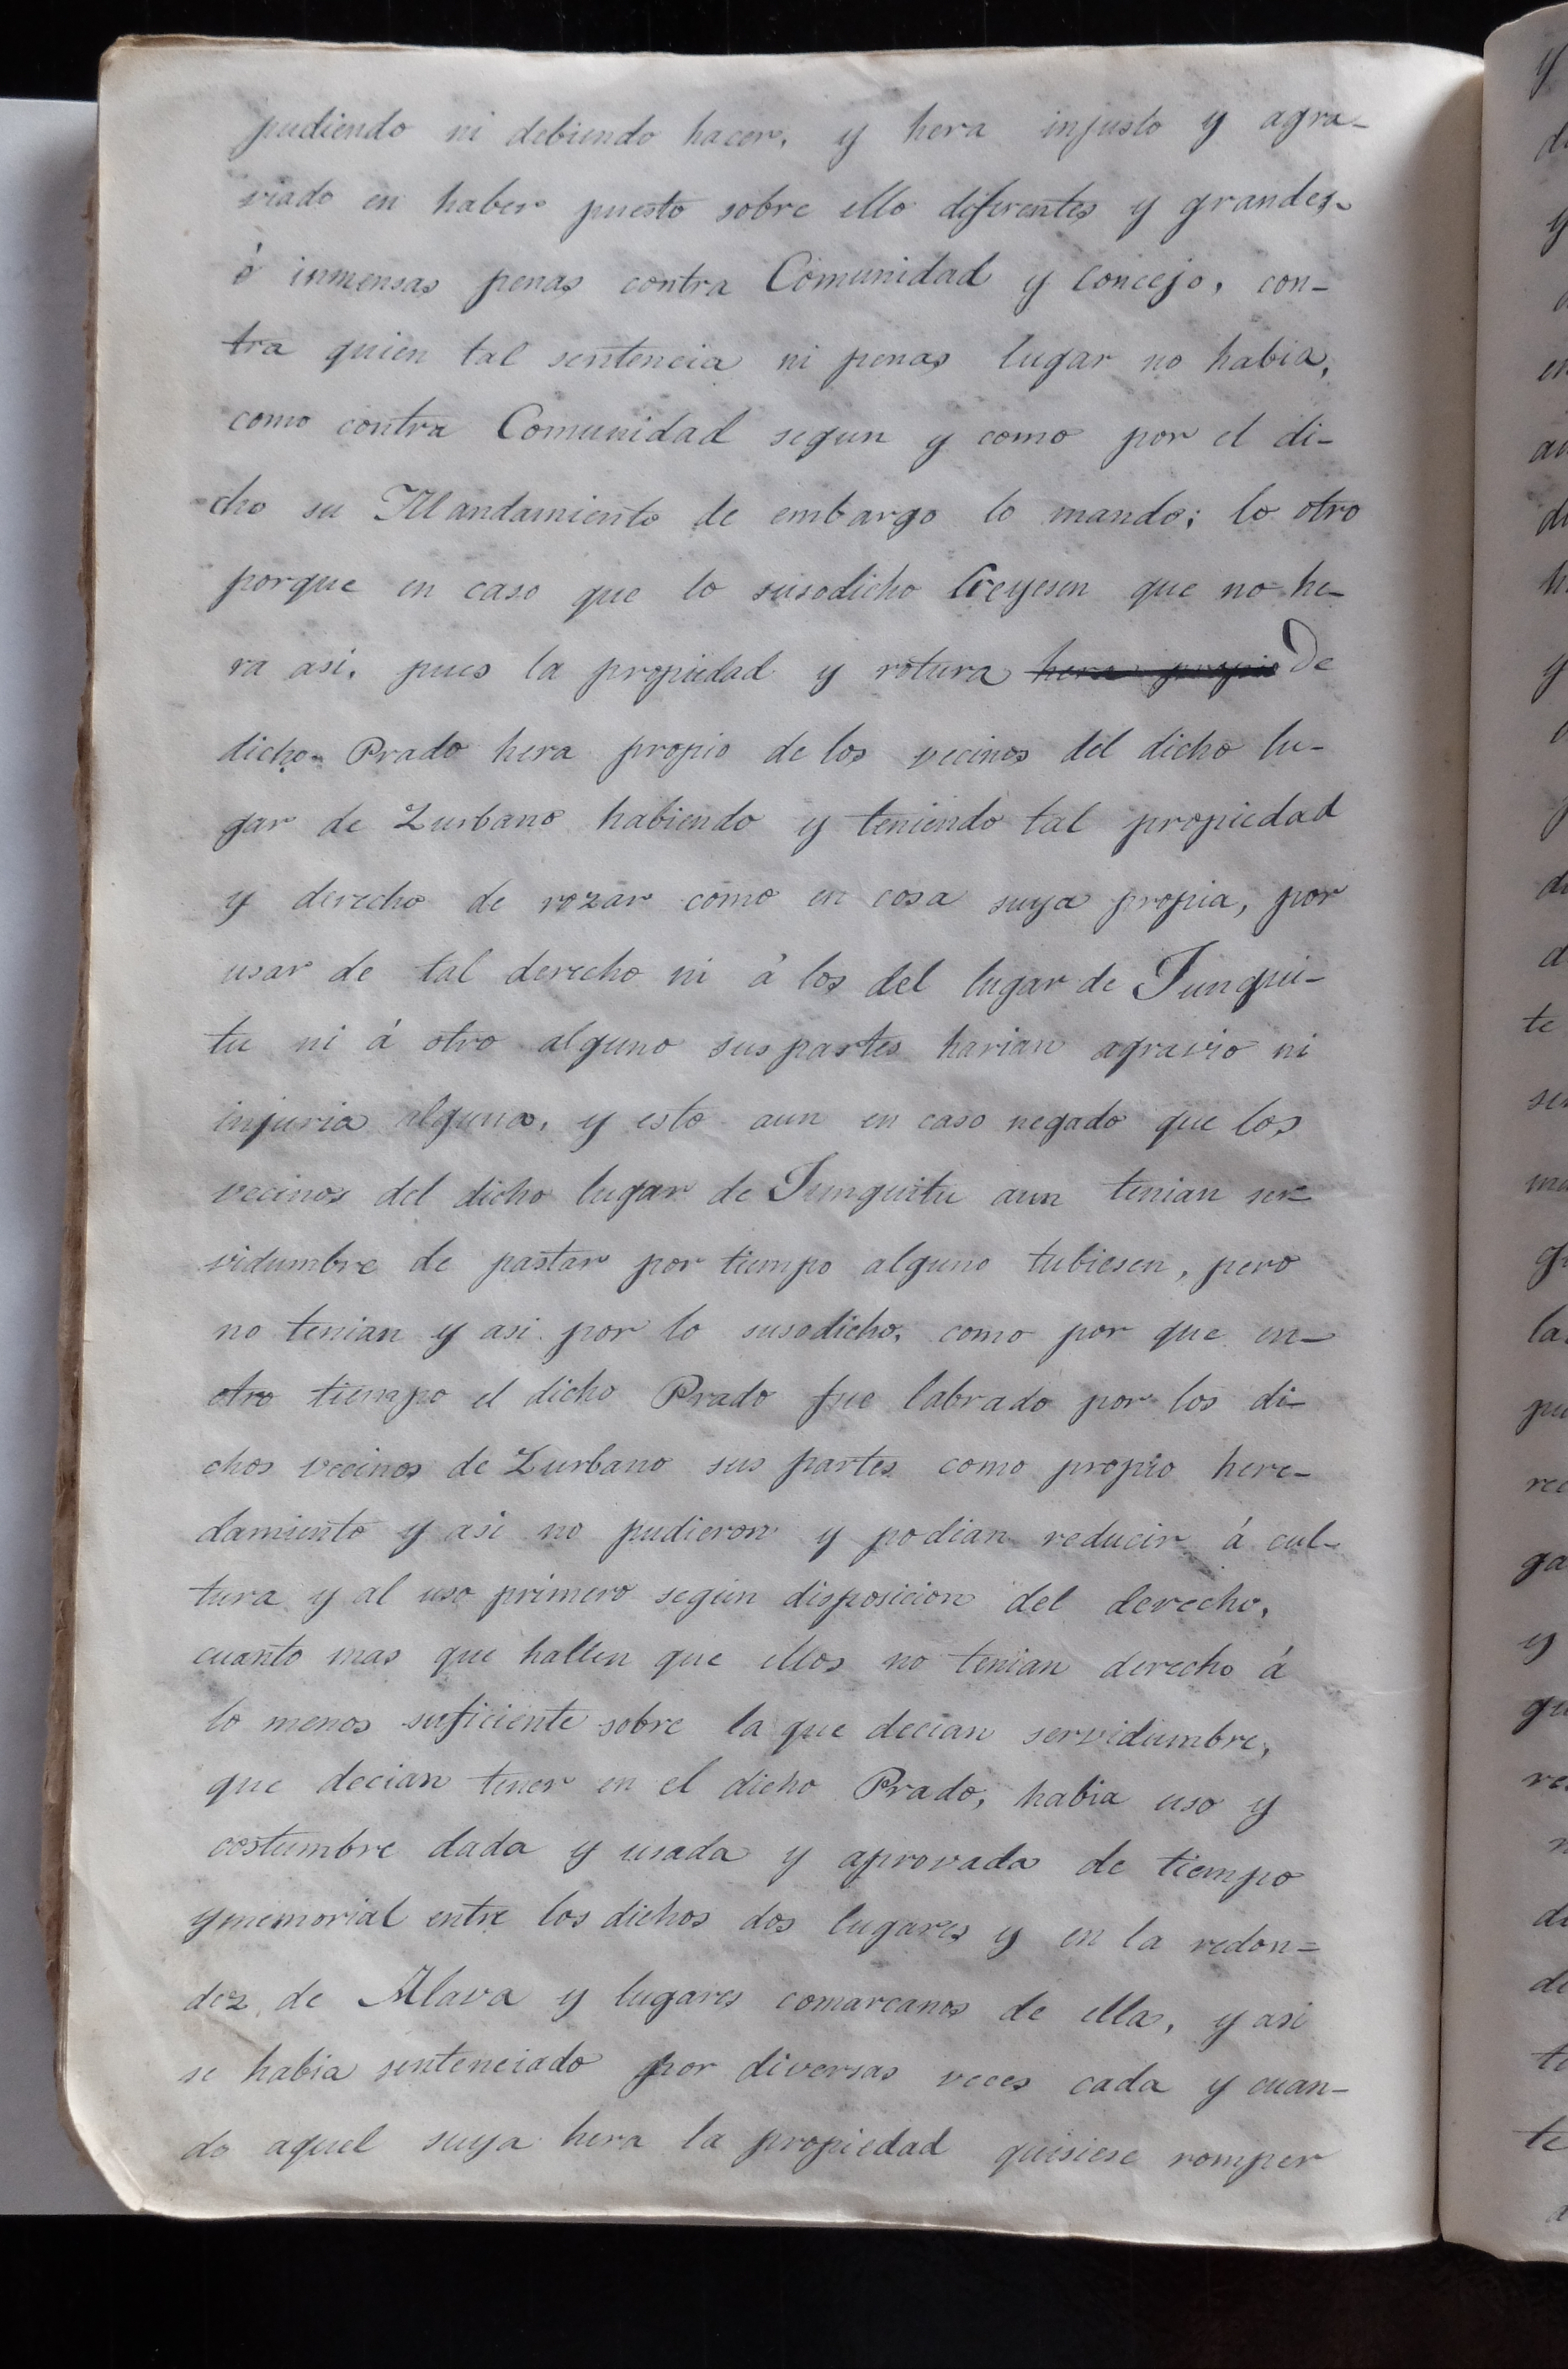 pudiendo ni debiendo hacer, y hera injusto y agra-
viado en haber puesto sobre ello diferentes y grandes
é inmensas penas contra Comunidad y Concejo, con-
tra quien tal sentencia ni penas lugar no habia,
como contra Comunidad segun y como por el di-
cho su Mandamiento de embargo lo mando; lo otro
porque en caso que lo susodicho Creyesen que no he-
ra asi, pues la propiedad y rotura hera propio De
dicho Prado hera propio de los vecinos del dicho lu-
gar de Zurbano habiendo y teniendo tal propiedad
y derecho de rozar como en cosa suya propia, por
usar de tal derecho ni á los del lugar de Junqui-
tu ni á otro alguno sus partes harian agravio ni
injuria alguna, y esto aun en caso negado que los
vecinos del dicho lugar de Junguitu aun tenian ser-
vidumbre de pastar por tiempo alguno tubiesen, pero
no tenian y asi por lo susodicho, como por que en-
otro tiempo el dicho Prado fue labrado por los di-
chos vecinos de Zurbano sus partes como propio here-
damiento y asi no pudieron y podian reducir á cul-
tura y al uso primero según disposicion del derecho,
cuanto mas que hallen que ellos no tenian derecho á
lo menos suficiente sobre la que decian servidumbre,
que decian tener en el dicho Prado, habia uso y
costumbre dada y usada y aprovada de tiempo
ymemorial entre los dichos dos lugares y en la redon=
dez de Alava y lugares comarcanos de ella, y asi
se habia sentenciado por diversas veces cada y cuan-
do aquel suya hera la propiedad quisiese romper